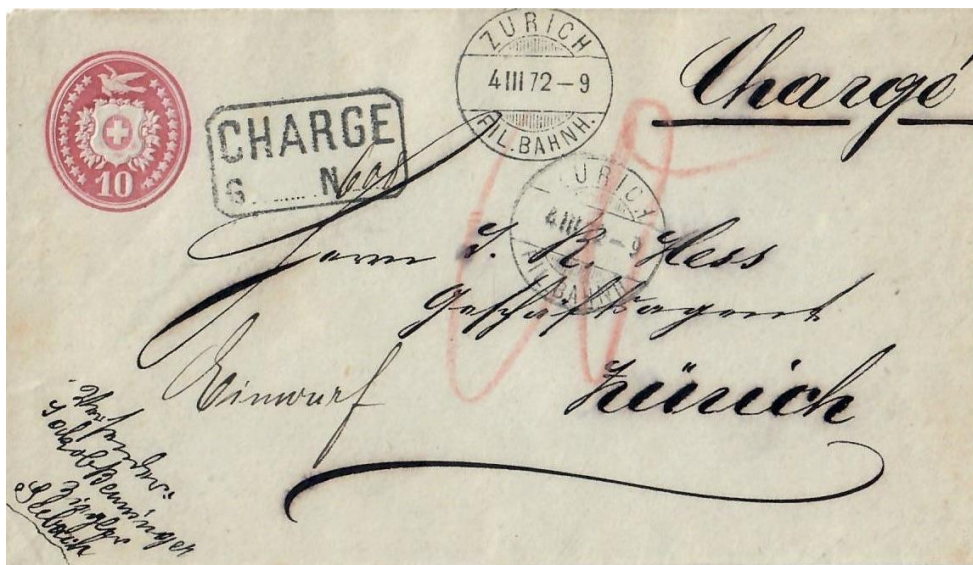 10
CHARGE
S. N 608
ZURICH
4 III 72 – 9
FIL. BAHNH.
Chargé
ZURICH
4 III 72 – 9
FIL. BAHNH.
Herrn J. R. Hess
Geschäftsagent
Zürich
Einwurf
Versender:
Jakob Denninger
Seebach